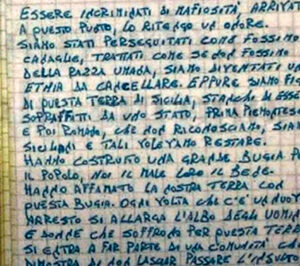 ESSERE INCRIMINATI DI MAFIOSITÀ, ARRIVAT
A QUESTO PUNTO, LO RITENGO UN ONORE.
SIAMO STATI PERSEGUITATI COME FOSSIMO
CANAGLIE, TRATTATI COME SE NON FOSSIMO
DELLA RAZZA UMANA, SIAMO DIVENTATI UN
ETNIA DA CANCELLARE. EPPURE SIAMO FI
DI QUESTA TERRA DI SICILIA, STANCHI DI ESSE
SOPRAFFATTI DA UNO STATO, PRIMA PIEMONTES
E POI ROMANO, CHE NON RICONOSCIAMO, SIAM
SICILIANI E TALI VOLEVAMO RESTARE.
HANNO COSTRUITO UNA GRANDE BUGIA P
IL POPOLO, NOI IL MALE LORO IL BENE.
HANNO AFFAMATO LA NOSTRA TERRA CON
QUESTA BUGIA. OGNI VOLTA CHE C'È UN NUOV
ARRESTO SI ALLARGA L'ALBO DEGLI UOMIN
E DONNE CHE SOFFRONO PER QUESTA TER
SI ENTRA A FAR PARTE DI UNA COMUNITÀ CH
DIMOSTRA DI NON LASCIAR PASSARE L'INSULTO